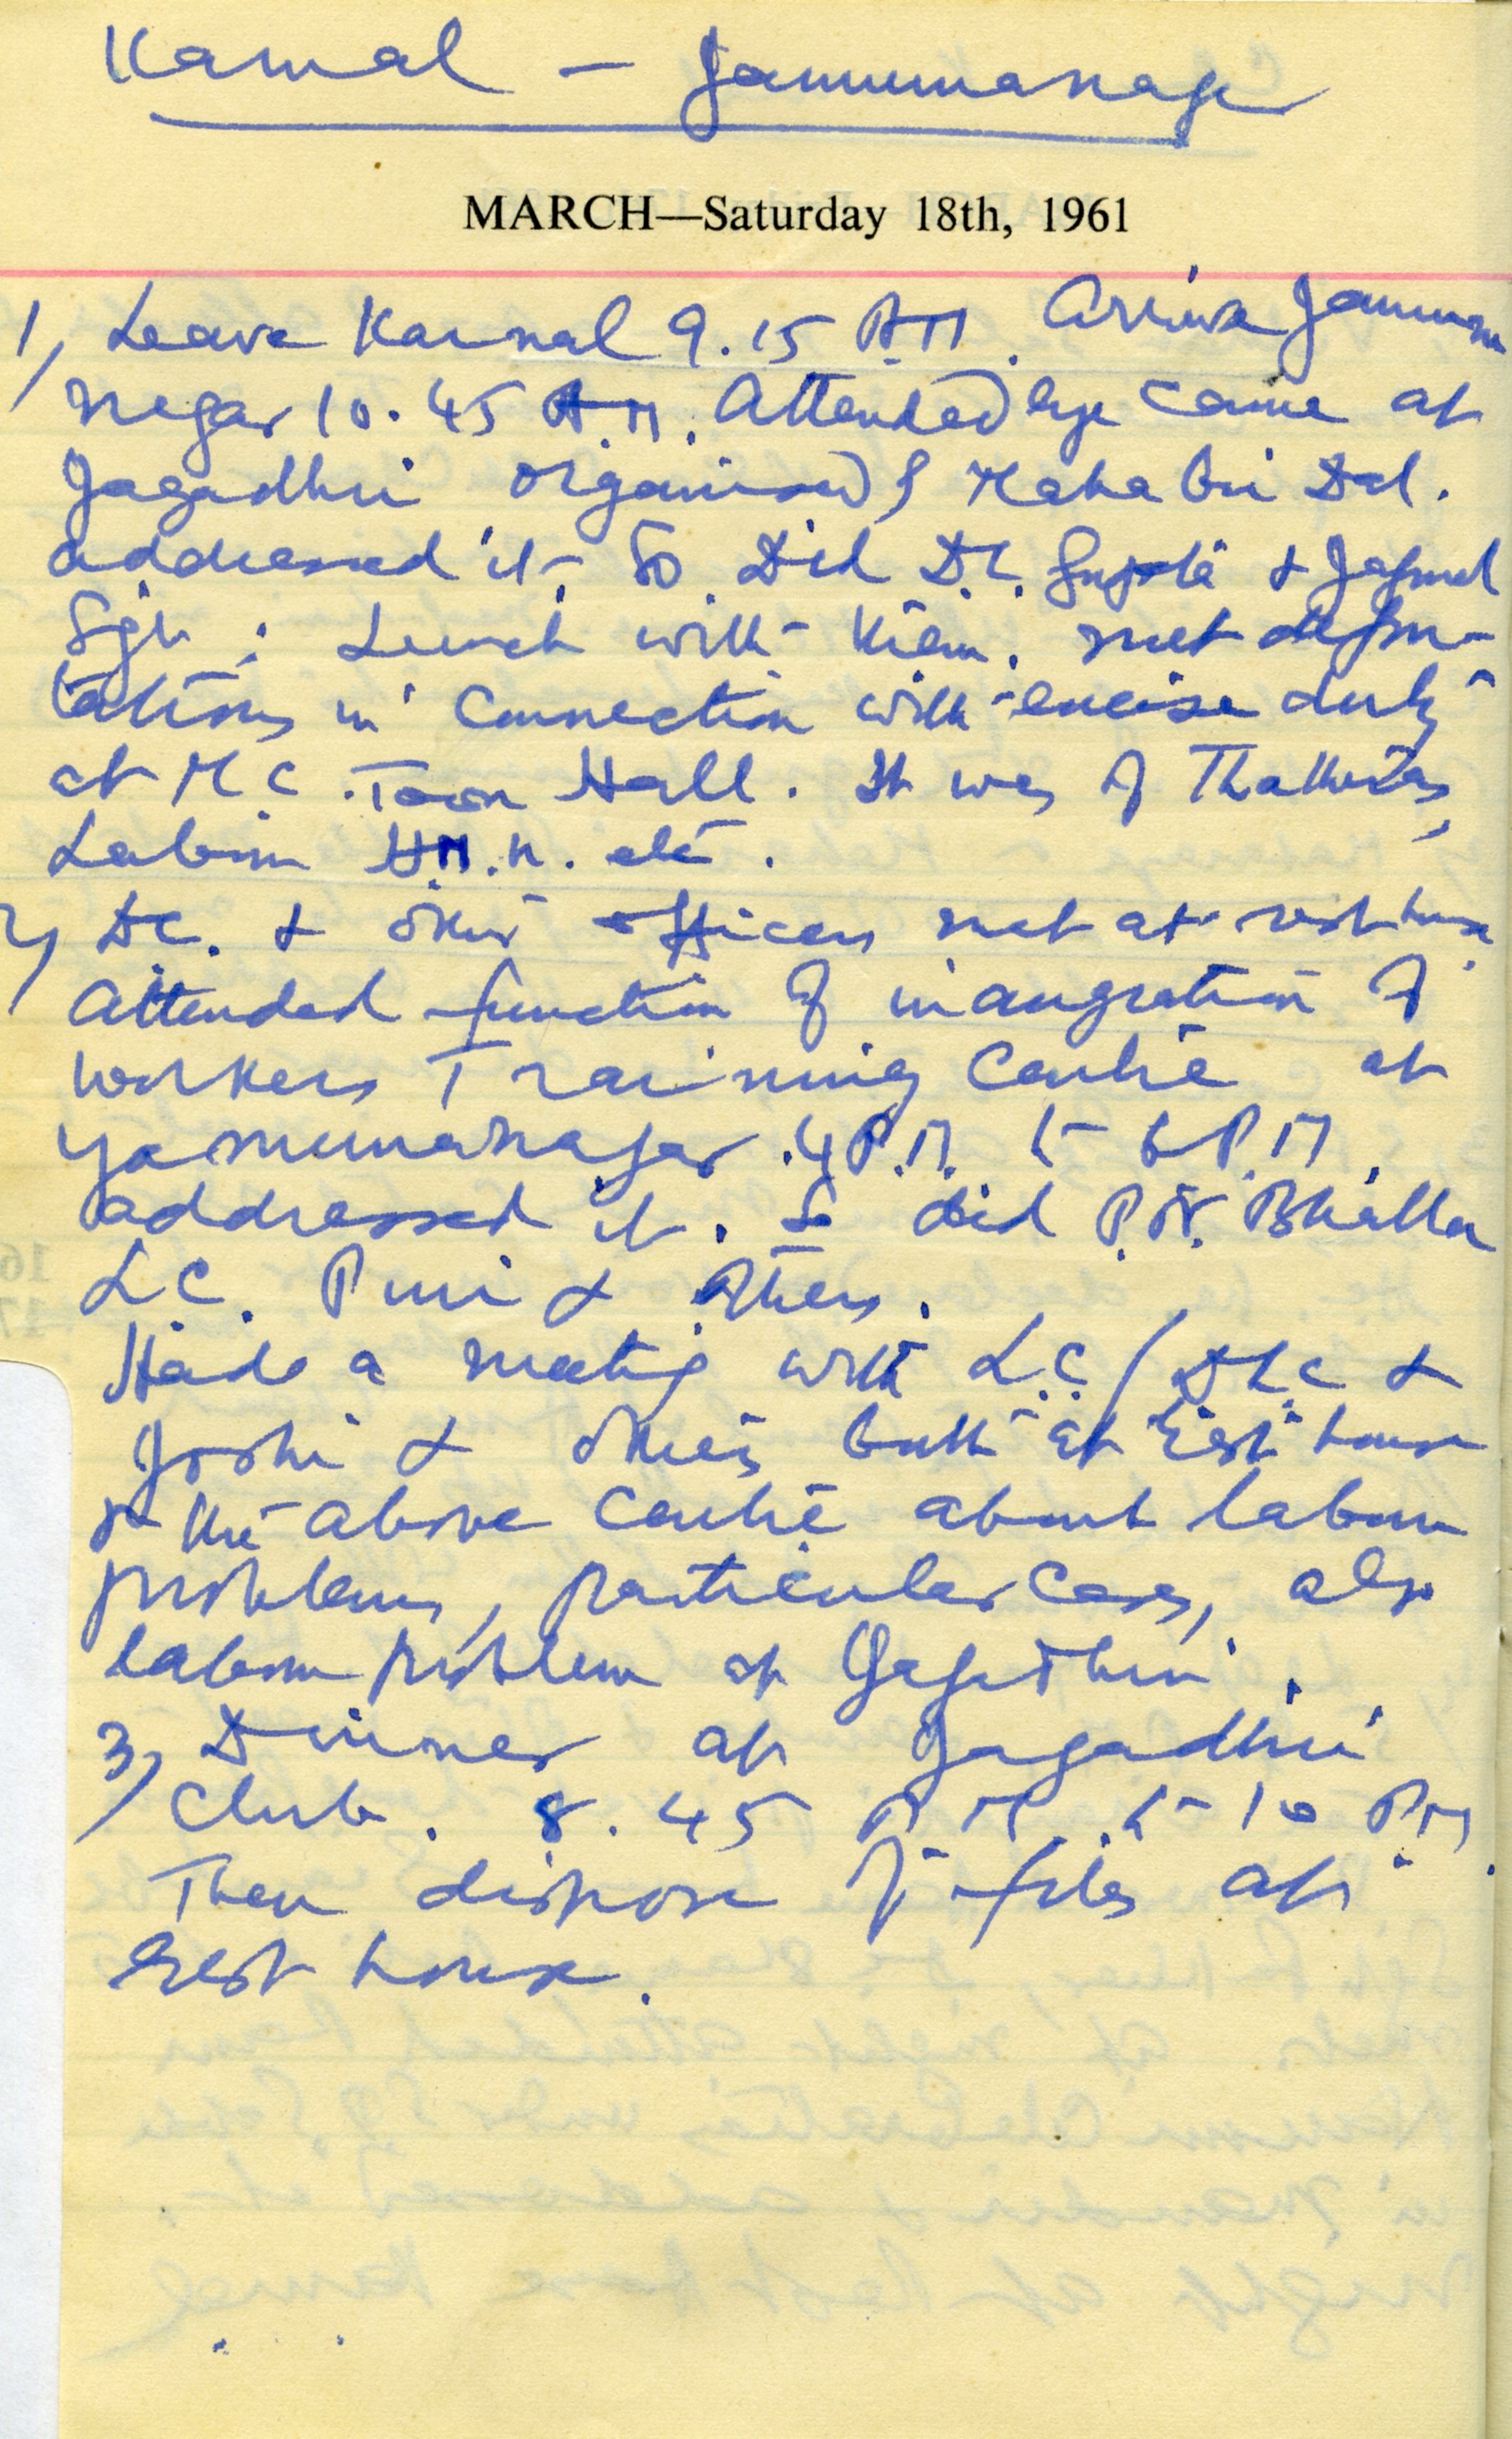 Karnal — Jamunanagar
MARCH—Saturday 18th, 1961
1, Leave Karnal 9.15 A.M. Arrive Jamuna
negar 10.45 A.M. Attended eye camp at
Jagadhri organised by Mahabir Dal.
addressed it. So Did D.C. Gupta &
Sgh; Lunch with them. met depu-
tations in connection with excise duty
at M.C. Town Hall. It was of
Labour etc.
2, D.C. & other officers met at rest house
Attended function of inaugration of
workers Training Centre at
Yamunanagar. 4 P.M. to 6 P.M.
addressed it. So did P.N. Bhalla
L.C. Puri & others.
Had a meeting with L.C/D.L.C &
Joshi & others both at rest house
& the above Centre about labour
problems, particular cases, also
labour problem at Jagadhri.
3, Dinner at Jagadhri
Club. 8.45 P.M. to 10 P.M.
Then dispose of files at
rest house.